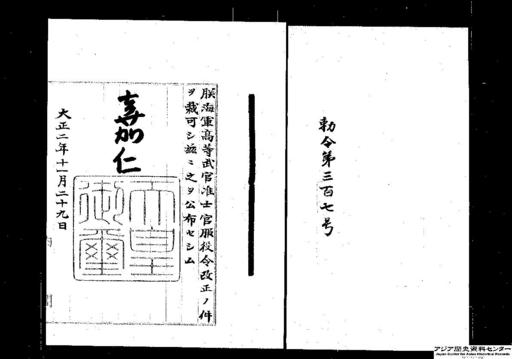 勅令第三百七号
朕海軍高等武官准士官服役令改正ノ件
ヲ裁可シ茲ニ之ヲ公布セシム
嘉仁
天皇御璽
大正二年十一月二十九日
内閣
アジア歴史資料センター
Japan Center for Asian Historical Records